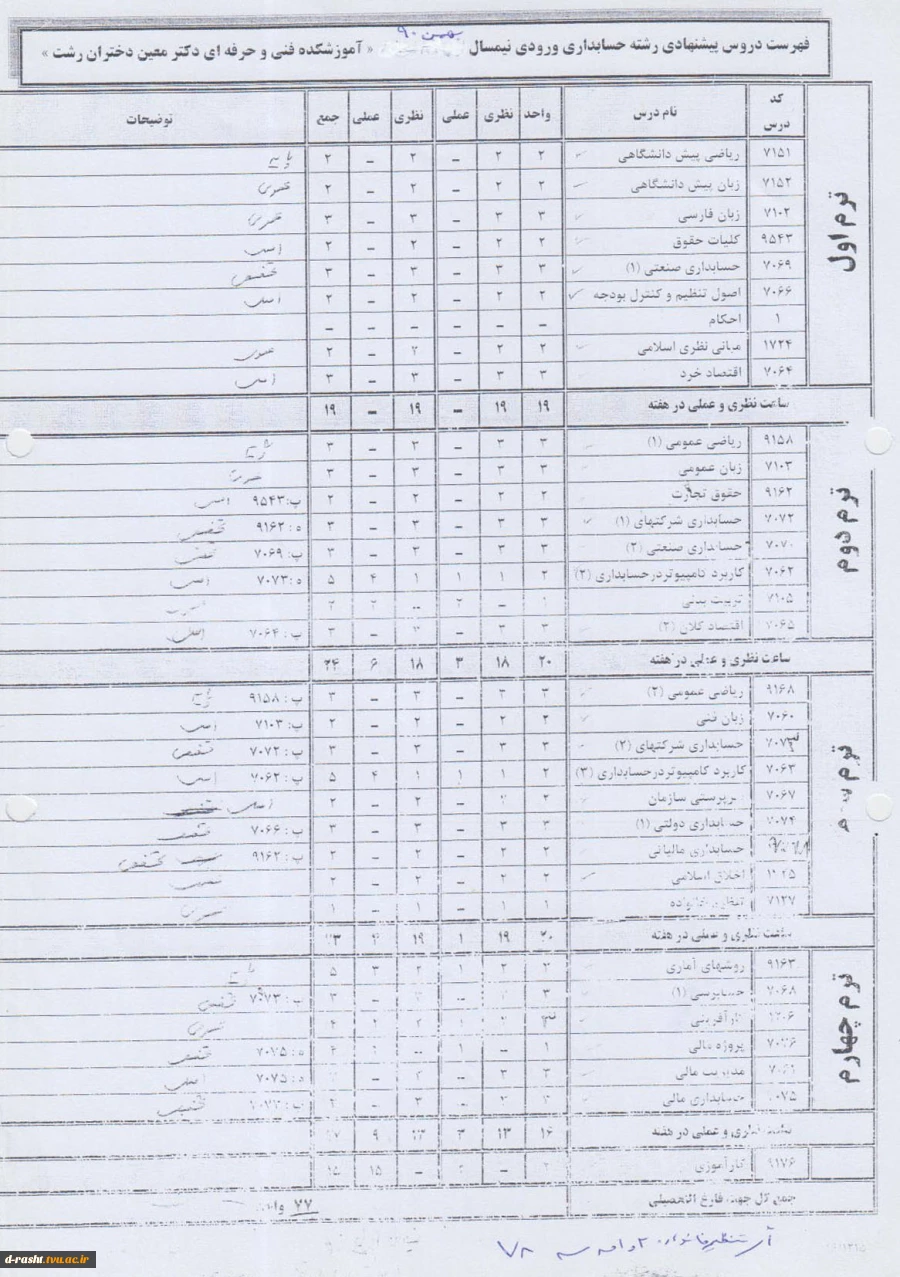 فهرست دروس پیشنهادی رشته حسابداری ورودی نیمسال بهمن ۹۰ « آموزشکده فنی و حرفه ای دکتر معین دختران رشت »
کد درس نام درس واحد نظری عملی نظری عملی جمع توضیحات
ترم اول
۷۱۵۱ ریاضی پیش دانشگاهی ۲ ۲ – ۲ – ۲ پایه
۷۱۵۲ زبان پیش دانشگاهی ۲ ۲ – ۲ – ۲ عمومی
۷۱۰۲ زبان فارسی ۳ ۳ – ۳ – ۳ عمومی
۹۵۴۳ کلیات حقوق ۲ ۲ – ۲ – ۲ اصلی
۷۰۶۹ حسابداری صنعتی (۱) ۳ ۳ – ۳ – ۳ تخصصی
۷۰۶۶ اصول تنظیم و کنترل بودجه ۲ ۲ – ۲ – ۲ اصلی
۱ احکام – – – – – –
۱۷۲۴ مبانی نظری اسلامی ۲ ۲ – ۲ – ۲ عمومی
۷۰۶۴ اقتصاد خرد ۳ ۳ – ۳ – ۳ اصلی
ساعت نظری و عملی در هفته ۱۹ ۱۹ – ۱۹ – ۱۹
ترم دوم
۹۱۵۸ ریاضی عمومی (۱) ۳ ۳ – ۳ – ۳ پایه
۷۱۰۳ زبان عمومی ۳ ۳ – ۳ – ۳ عمومی
۹۱۶۲ حقوق تجارت ۲ ۲ – ۲ – ۲ پ: ۹۵۴۳ اصلی
۷۰۷۲ حسابداری شرکتهای (۱) ۳ ۳ – ۳ – ۳ ه: ۹۱۶۲ تخصصی
۷۰۷۰ حسابداری صنعتی (۲) ۳ ۳ – ۳ – ۳ پ: ۷۰۶۹ تخصصی
۷۰۶۲ کاربرد کامپیوتردرحسابداری (۲) ۲ ۱ ۱ ۱ ۴ ۵ ه: ۷۰۷۳ اصلی
۷۱۰۵ تربیت بدنی ۱ – ۲ – ۲ ۲
۷۰۶۵ اقتصاد کلان (۲) ۳ ۳ – ۳ – ۳ پ: ۷۰۶۴ اصلی
ساعت نظری و عملی در هفته ۲۰ ۱۸ ۳ ۱۸ ۶ ۲۴
ترم سوم
۹۱۶۸ ریاضی عمومی (۲) ۳ ۳ – ۳ – ۳ پ: ۹۱۵۸ پایه
۷۰۶۰ زبان فنی ۲ ۲ – ۲ – ۲ پ: ۷۱۰۳ اصلی
۷۰۷۳ حسابداری شرکتهای (۲) ۳ ۳ – ۳ – ۳ پ: ۷۰۷۲ تخصصی
۷۰۶۳ کاربرد کامپیوتردرحسابداری (۳) ۲ ۱ ۱ ۱ ۴ ۵ پ: ۷۰۶۲ اصلی
۷۰۶۷ سرپرستی سازمان ۲ ۲ – ۲ – ۲ اصلی
۷۰۷۴ حسابداری دولتی (۱) ۳ ۳ – ۳ – ۳ پ: ۷۰۶۶ تخصصی
حسابداری مالیاتی ۲ ۲ – ۲ – ۲ پ: ۹۱۶۲ تخصصی
اخلاق اسلامی ۲ ۲ – ۲ – ۲ عمومی
۷۱۲۷ تنظیم خانواده ۱ ۱ – ۱ – ۱ عمومی
ساعت نظری و عملی در هفته ۲۰ ۱۹ ۱ ۱۹ ۴ ۲۳
ترم چهارم
۹۱۶۳ روشهای آماری ۳ ۲ ۱ ۲ ۳ ۵ پایه
۷۰۶۸ حسابرسی (۱) ۳ – – ۳ پ: ۷۰۷۳ تخصصی
کارآفرینی عمومی
پروژه مالی ۱ – ۱ ه: ۷۰۷۵ تخصصی
مدیریت مالی ۳ ۳ – – ه: ۷۰۷۵ اصلی
حسابداری مالی – ۳ – تخصصی
ساعت نظری و عملی در هفته ۱۶ ۱۳ ۳ ۱۳ ۹
۹۱۷۶ کارآموزی ۲ – ۲ – ۱۵ ۱۵
جمع کل جهت فارغ التحصیلی ۷۷ واحد
d-rasht.tvu.ac.ir